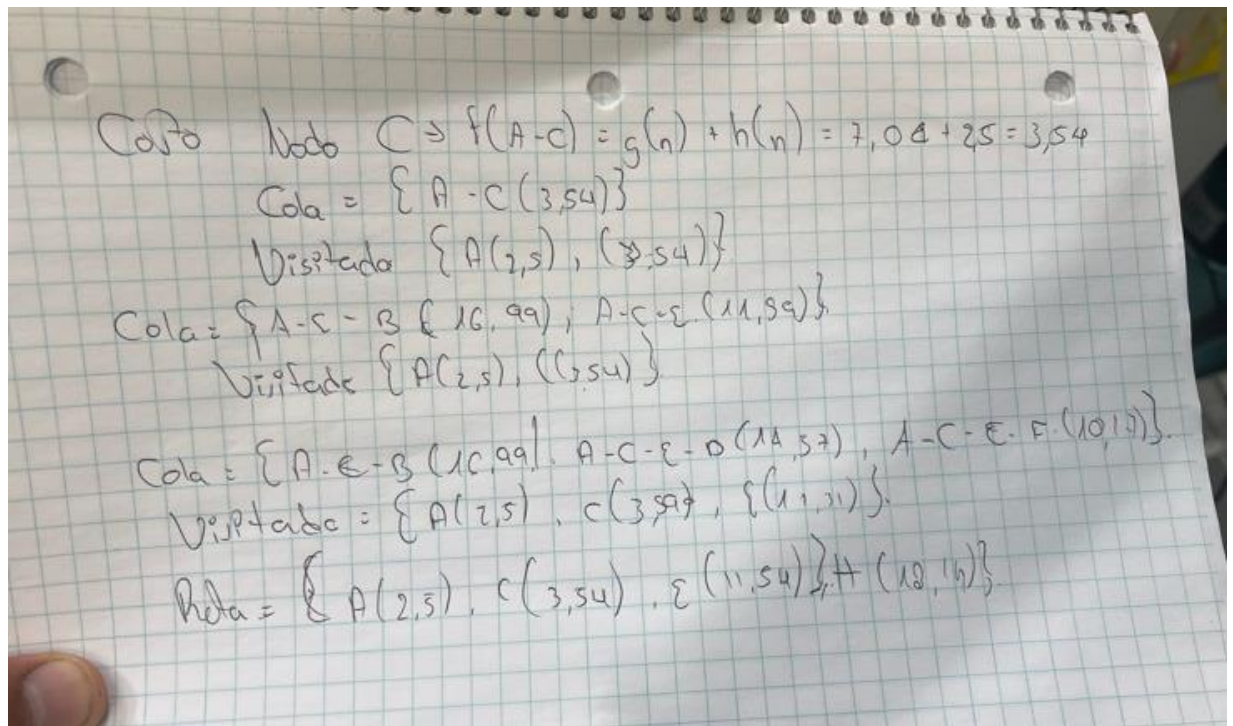 Costo Nodo C => f(A-C) = g(n) + h(n) = 7,04 + 2,5 = 3,54
Cola = { A - C (3,54)}
Visitado {A(2,5), (3,54)}
Cola = {A-C-B (16,99), A-C-E (11,99)}
Visitado {A(2,5), C(3,54)}
Cola = {A-C-B (16,99) A-C-E-D (14,57), A-C-E-F (10,17)}
Visitado = {A(2,5), C(3,54), E(11,31)}
Ruta = { A(2,5), C(3,54), E(11,54)},